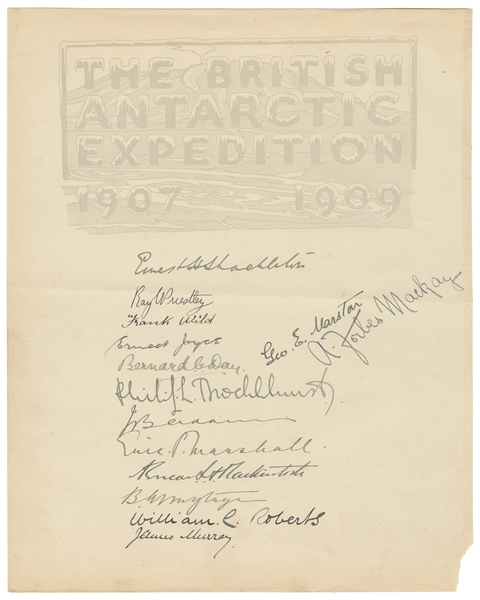 THE BRITISH
ANTARCTIC
EXPEDITION
1907 1909
Ernest H Shackleton
Ray Priestley
Frank Wild
Geo. E. Marston
A. Forbes Mackay
Ernest Joyce
Bernard C. Day.
Philip L. Brocklehurst
JB Adams
Eric P. Marshall.
Aeneas L. A. Mackintosh
B. Armytage
William. C. Roberts
James Murray